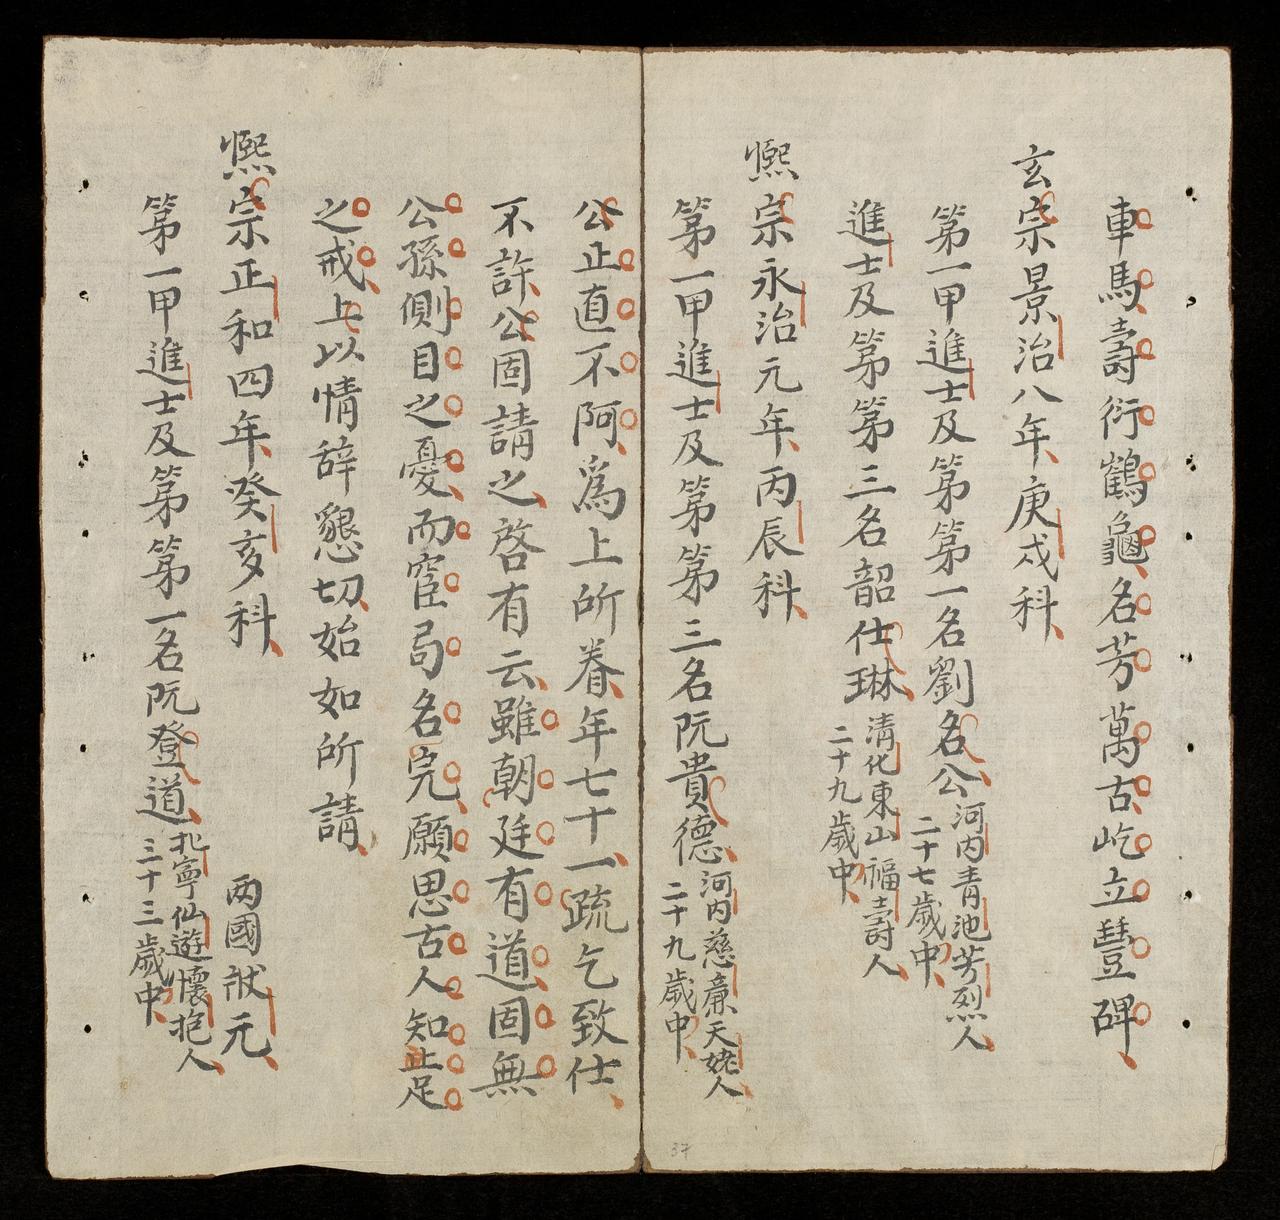 車馬壽衍鶴龜名芳萬古屹立豐碑
玄宗景治八年庚戌科
第一甲進士及第第一名劉名公河内青池芳烈人
二十七歲中
進士及第第三名韶仕琳清化東山福壽人
二十九歲中
熈宗永治元年丙辰科
第一甲進士及第第三名阮貴德河内慈廉天姥人
二十九歲中
公正直不阿爲上所眷年七十一疏乞致仕
不許公固請之啓有云雖朝廷有道固無
公孫側目之憂而宦局名完願思古人知止足
之戒上以情辞懇切始如所請
熈宗正和四年癸亥科
两國狀元
第一甲進士及第第一名阮登道北寧仙遊懷抱人
三十三歲中
37